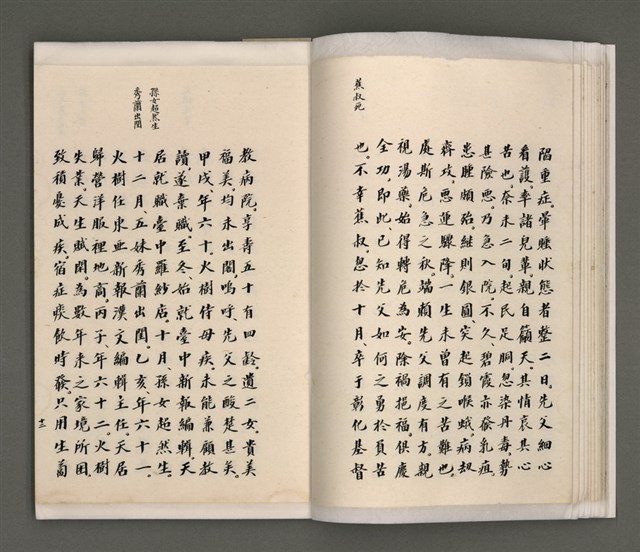 蕉叔死
陷重症、暈睡狀態者整二日。先父細心
看護、率諸兒輩、親自籲天。其情哀、其心
苦也。奈未二旬、起民足胴忽染丹毒、勢
甚險惡、乃急入院。不久碧霞亦發乳疽、
患腫頗殆。繼則銀圓突起鎖喉蛾。病劫
齊攻、惡運驟降。一生未曾有之苦難也。
處斯危急之秋、端賴先父調度有方、親
視湯藥、始得轉危為安。除禍挹福、俱慶
全功。即此、已知先父如何之勇於負苦
也。不幸蕉叔、忽於十月、卒于彰化基督
教病院。享壽五十有四齡。遺二女、貴美
福美、均未出閣。嗚呼、先父之酸楚甚矣。
甲戌、年六十。火樹侍母疾、未能兼顧教
讀、遂棄職。至冬、始就臺中新報編輯。天
居就職臺中羅紗店。十月、孫女超然生。
十二月、五妹秀蘭出閨。乙亥、年六十一。
火樹任東亞新報漢文編輯主任。天居
歸營洋服裡地商。丙子、年六十二。火樹
失業。天生賦閑。為數年來之家境所困、
致積憂成疾。宿症痰飲時發、只用生蔔
孫女超然生
秀蘭出閨
十二